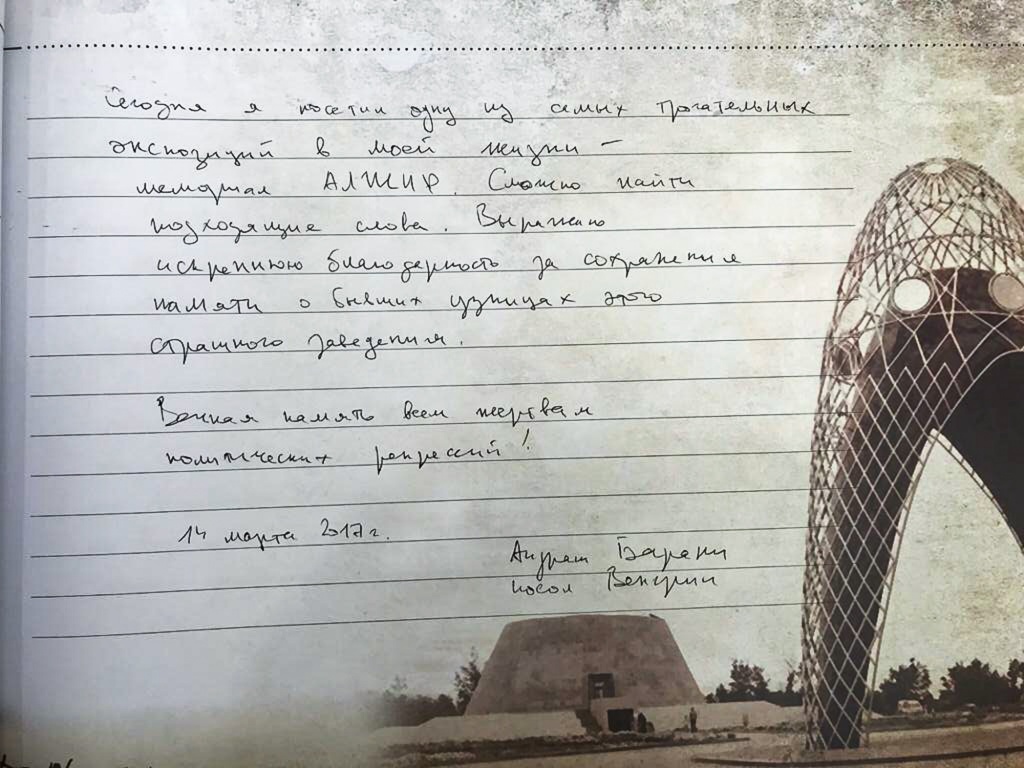 Сегодня я посетил одну из самых трогательных
экспозиций в моей жизни –
мемориал АЛЖИР. Сложно найти
подходящие слова. Выражаю
искреннюю благодарность за сохранения
памяти о бывших узницах этого
страшного заведения.
Вечная память всем жертвам
политических репрессий!
14 марта 2017 г.
Андраш Барани
посол Венгрии